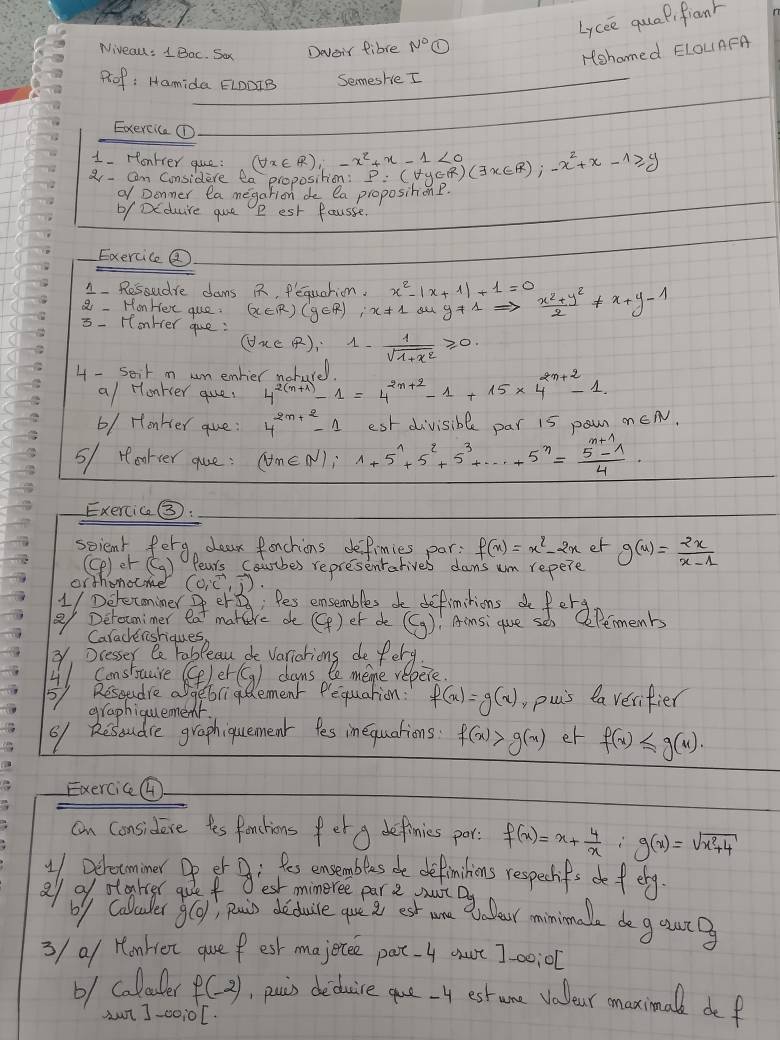 Niveau: 1 Bac. Sex Devoir libre N° ① Lycée qualifiant
Prof: Hamida ELDDIB Semestre I Mohamed ELOUAFA
Exercice ①
1- Montrer que: (∀x∈ℝ); -x²+x-1<0
2- On Considère la proposition: P: (∀y∈ℝ)(∃x∈ℝ); -x²+x-1≥y
a/ Donner la négation de la proposition P.
b/ Déduire que P est fausse.
Exercice ②
1- Résoudre dans ℝ, l'équation. x²-|x+1|+1=0
2- Montrer que: (x∈ℝ)(y∈ℝ); x≠1 ou y≠1 ⟹ (x²+y²)/2 ≠ x+y-1
3- Montrer que:
(∀x∈ℝ); 1 - 1/√(1+x²) ≥0.
4- Soit n un entier naturel.
a/ Montrer que: 4^(2(n+1)) - 1 = 4^(2n+2) - 1 + 15×4^(2n+2) - 1.
b/ Montrer que: 4^(2n+2) - 1 est divisible par 15 pour n∈ℕ.
5/ Montrer que: (∀n∈ℕ); 1+5¹+5²+5³+...+5ⁿ = (5^(n+1) - 1)/4.
Exercice ③:
Soient f et g deux fonctions définies par: f(x)=x²-2x et g(x)=2x/(x-1)
(Cf) et (Cg) leurs courbes représentatives dans un repère
orthonormé (o,i⃗,j⃗).
1/ Déterminer Df et Dg; les ensembles de définitions de f et g.
2/ Déterminer la nature de (Cf) et de (Cg), Ainsi que ses éléments
Caractéristiques.
3/ Dresser le tableau de variations de f et g.
4/ Construire (Cf) et (Cg) dans le même repère.
5/ Résoudre algébriquement l'équation: f(x)=g(x), puis la vérifier
graphiquement.
6/ Résoudre graphiquement les inéquations: f(x)>g(x) et f(x)≤g(x).
Exercice ④
On Considère les fonctions f et g définies par: f(x)=x+4/x ; g(x)=√(x²+4)
1/ Déterminer Df et Dg; les ensembles de définitions respectifs de f et g.
2/ a/ Montrer que f est minorée par 2 sur Dg
b/ Calculer g(0), puis déduire que 2 est une valeur minimale de g sur Dg
3/ a/ Montrer que f est majorée par -4 sur ]-∞;0[
b/ Calculer f(-2), puis déduire que -4 est une valeur maximale de f
sur ]-∞;0[.